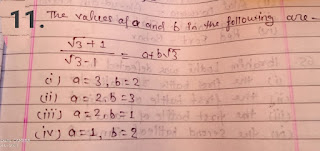 11. The values of a and b in the following are -
√3+1
√3-1 = a+b√3
(i) a=3, b=2
(ii) a=2, b=3
(iii) a=2, b=1
(iv) a=1, b=2